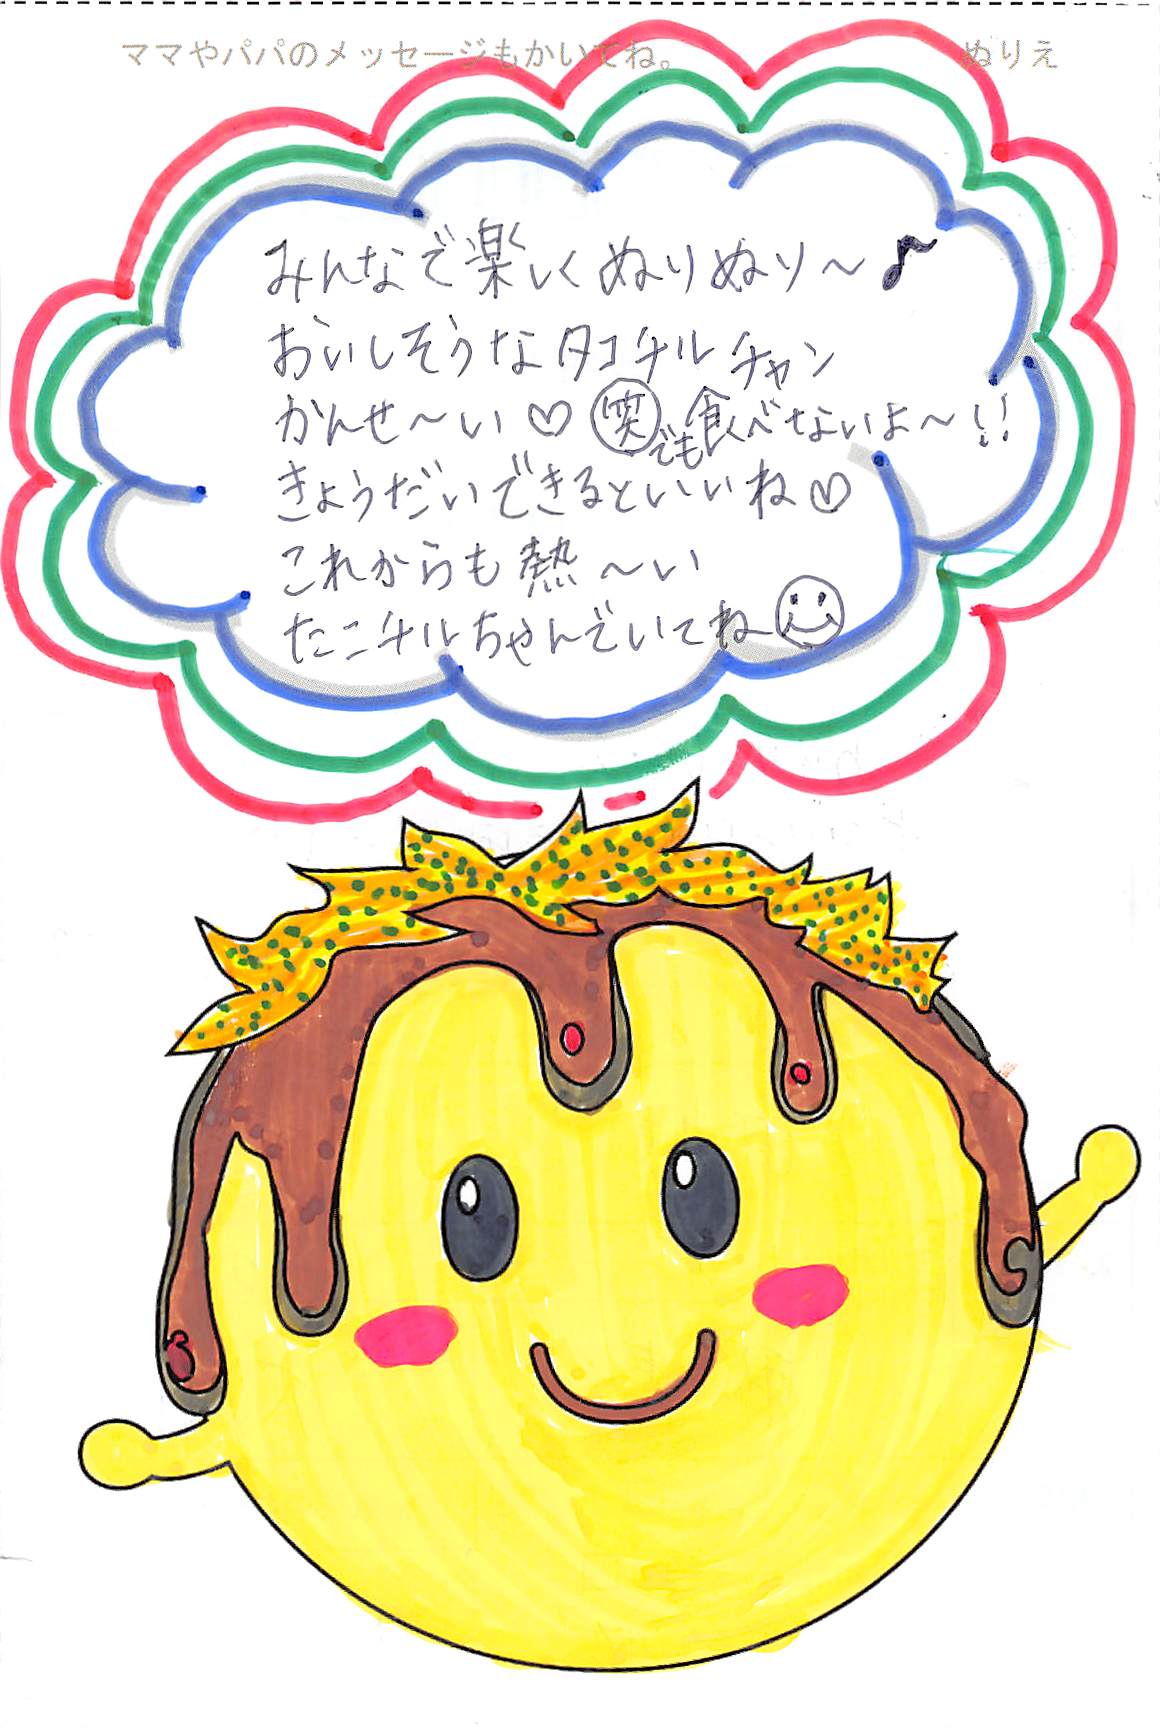 ママやパパのメッセージもかいてね。 ぬりえ
みんなで楽しくぬりぬり〜♪
おいしそうなタコチルチャン
かんせ〜い♡ 笑 でも食べないよ〜!!
きょうだいできるといいね♡
これからも熱〜い
たこチルちゃんでいてね